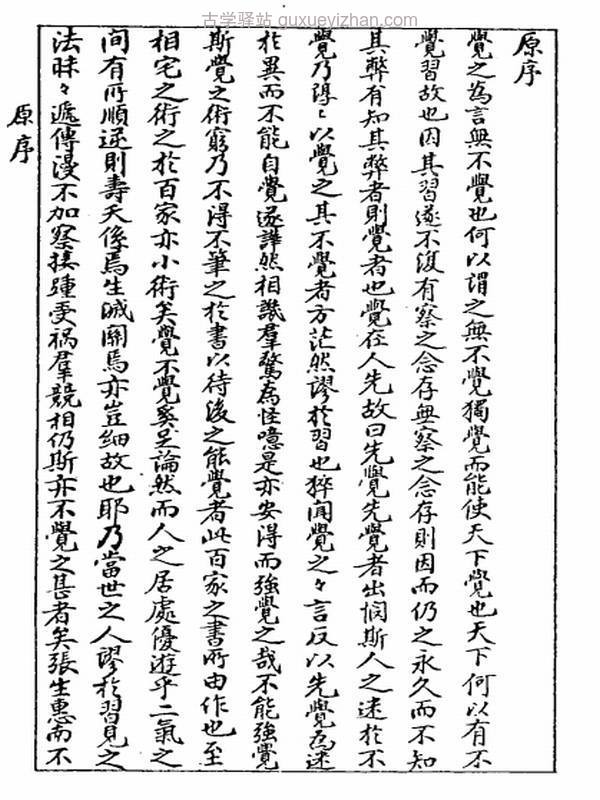 古学驿站 guxueyizhan.com
原序
覺之為言無不覺也何以謂之無不覺獨覺而能使天下覺也天下何以有不
覺習故也因其習遂不復有察之念存無察之念存則因而仍之永久而不知
其弊有知其弊者則覺者也覺在人先故曰先覺先覺者出憫斯人之迷於不
覺乃諄〻以覺之其不覺者方茫然謬於習也猝聞覺之〻言反以先覺為迷
於異而不能自覺遂譁然相譏羣驚為怪噫是亦安得而強覺之哉不能強覺
斯覺之術窮乃不得不筆之於書以待後之能覺者此百家之書所由作也至
相宅之術之於百家亦小術矣覺不覺奚足論然而人之居處優遊乎二氣之
間有所順逆則壽夭係焉生滅關焉亦豈細故也耶乃當世之人謬於習見之
法昧〻遞傳漫不加察接踵受禍羣競相仍斯亦不覺之甚者矣張生惠南不
原序